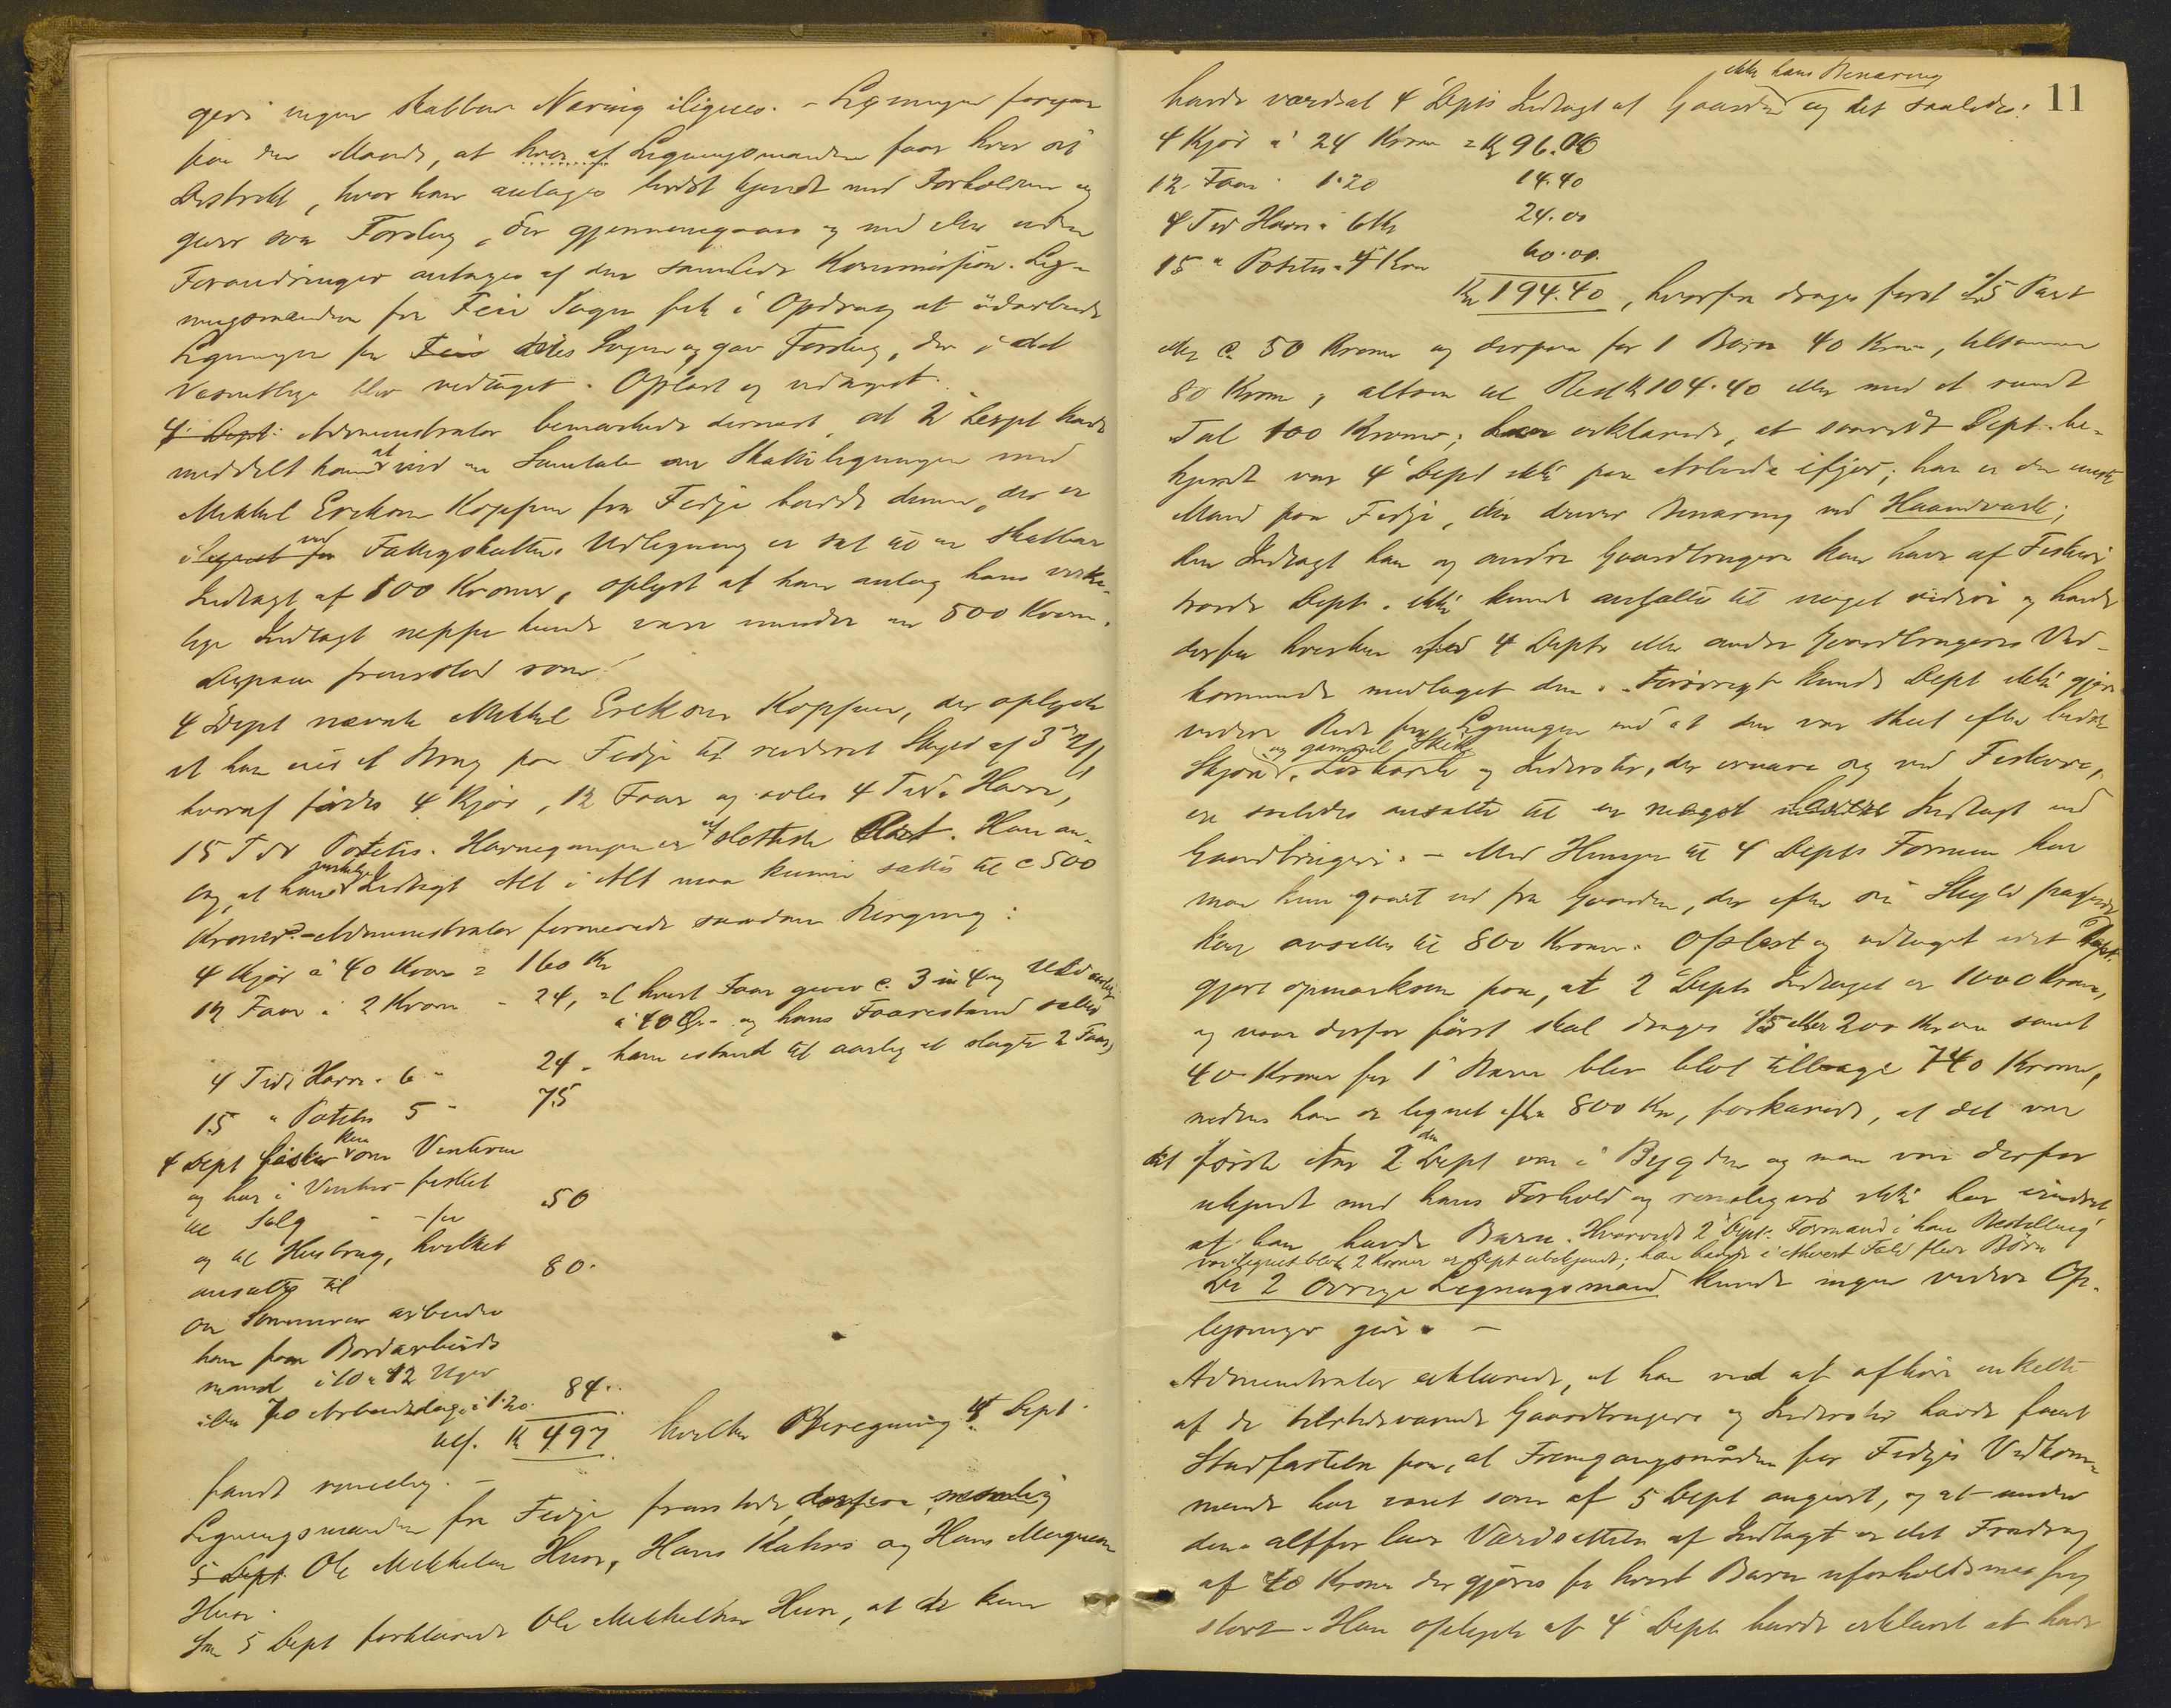 geri ingen skatbar Næring ilignes. - Ligningen foregaar
paa den Maade, at hver af Ligningsmændene faar hver sit
Distrikt, hvor han antages bedst kjendt med Forholdene og
giver sva Forslag, der gjennemgaaes og med eller uden
Forandringer antages af den samlede Kommission. Lig-
ningsmændene for Feie Sogn fik i Opdrag at udarbeide
Ligningen for dettes Sogn og gav Forslag, der i det
Væsentlige blev vedtaget. Oplæst og vedtaget.
4 Dept: Administrator bemærkede dernæst, at 2 Dept havde
meddelt ham at ved en Samtale om Skatteligningen med
Mikkel Erikson Koppen fra Fedje havde denne, der er
ilignet ved Fattigskattens Udligning er sat til en skatbar
Indtægt af 100 Kroner, oplyst at han antog hans virke-
lige Indtægt neppe kunde være mindre end 500 Kroner.
Derpaa fremstod som
4 Dept nævnte Mikkel Erikson Koppen, der oplyste
at han eier et Brug paa Fedje til revideret Skyld af 3
hvoraf fødes 4 Kjør, 12 Faar og avles 4 Tdr. Havre,
15 Tdr Poteter. Havnegangen er af slettest Art. Han an-
tog, at hans virkelige Indtægt Alt i Alt maa kunne sættes til c 500
Kroner. - Administrator formerede saadan Beregning:
4 Kjør à 40 Kroner = 160 Kr
12 Faar à 2 Kroner - 24, = (hvert Faar giver c. 3 à 4 Uld aarlig
à 40 Øre og hans Faarestand sætter
ham istand til aarlig at slagte 2 Faar)
4 Tdr Havre . 6 " 24.
15 " Poteter 5 " 75
4 Dept fisker kun om Vinteren
og har i Vinter fisket
til Salg - - for 50
og til Husbrug, hvilket
ansættes til 80.
Om Sommeren arbeider
han som Bordarbeids
mand i 10 à 12 Uger
eller 70 Arbeidsdage à 1.20 84..
tils. Kr 497 hvilken Beregning 4 Dept.
fandt rimelig. -
Ligningsmændene for Fedje fremstode derpaa nemlig
5 Dept. Ole Mikkelsen Husø, Hans Rahns og Hans Magnesen
Husø.
Som 5 Dept forklarede Ole Mikkelsen Husø, at de kun
11
ikke hans Benæring
havde værdsat 4 Depts Indtægt af Gaarden og det saaledes:
4 Kjør à 24 Kroner = Kr 96.00
12 Faar . 1.20 14.40
4 Tdr Havre à 6 Kr 24.00
15 " Poteter à 4 Kroner 60.00
Kr 194.40, hvorfra drages først 1/5 Part
eller c. 50 Kroner og derpaa for 1 Barn 40 Kroner, tilsammen
80 Kroner, altsaa til Rest Kr 104.40 eller med et rundt
Tal 100 Kroner; han erklærede, at saavidt Dept. be-
kjendt var 4 Dept ikke paa Arbeide ifjor; han er den eneste
Mand paa Fedje, der driver Benæring ved Haandværk;
den Indtægt han og andre Gaardbrugere kan have af Fiskeri
troede Dept. ikke kunde ansættes til noget videre og havde
derfor hverken for 4 Depts eller andre Gaardbrugeres Ved-
kommende medtaget den. - Forøvrigt kunde Dept ikke gjøre
videre Rede for Ligningen end at den var skeet efter bedste
Skjøn og gammel Skik. Løskarle og Inderster, der ernære sig ved Fiskeri,
ere saaledes ansatte til en noget større Indtægt end
Gaardbrugere. - Med Hensyn til 4 Depts Formue har
man kun gaaet ud fra Gaarden, der efter sin Skyld passende
kan ansættes til 800 Kroner. Oplæst og vedtaget idet Dept.
gjøres opmærksom paa, at 2 Depts Indtægt er 1000 Kroner,
og naar derfor først skal drages 1/5 eller 200 Kroner samt
40 Kroner for 1 Barn blev blot tilbage 740 Kroner,
medens han er lignet efter 800 Kr, forklarede, at det var
det første Aar 2den Dept var i Bygden og man var derfor
ukjendt med hans Forhold og rimeligvis ikke har erindret
at han havde Barn. Hvorvidt 2 Depts Formand i hans Bestilling
var lignet blot 2 Kroner er Dept ubekjendt; han havde i ethvert Fald flere Børn
De 2 øvrige Ligningsmænd kunde ingen videre Op-
lysninger give. -
Administrator erklærede, at han ved at afhøre enkelte
af de tilstedeværende Gaardbrugere og Inderster havde faaet
Stadfæstelse paa, at Fremgangsmaaden for Fedjes Vedkom-
mende har været som af 5 Dept angivet, og at under
den altfor lave Værdsættelse af Indtægt er det Fradrag
af 40 Kroner der gjøres for hvert Barn uforholdsmæssig
stort. Han oplyste at 4 Dept havde erklæret at have